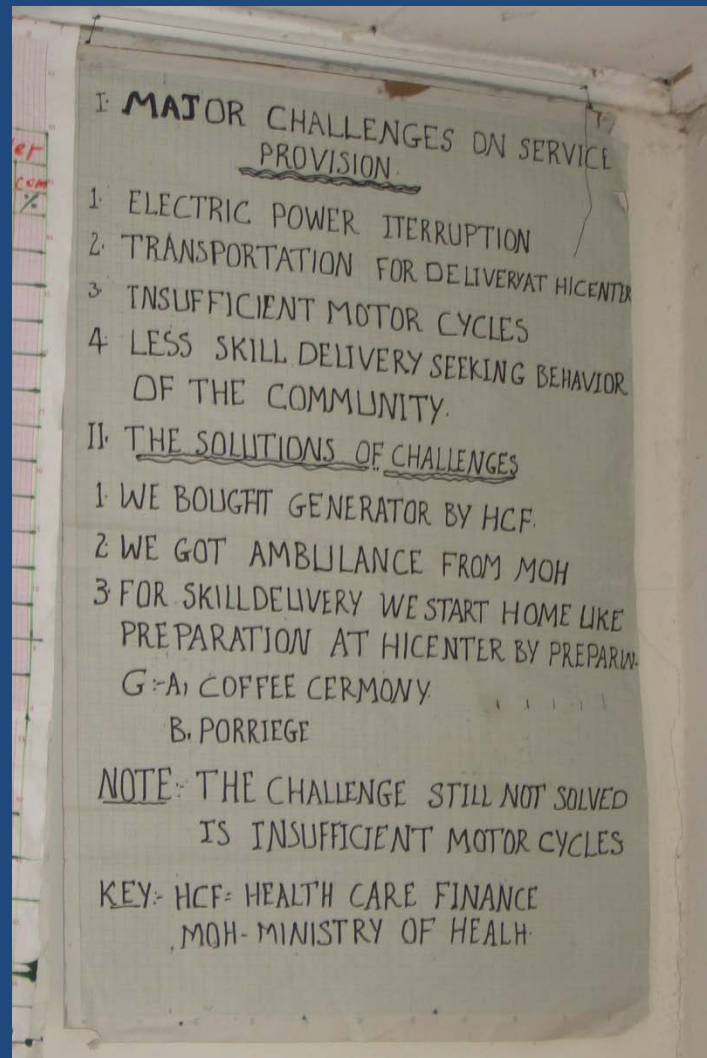 er
com
%
I. MAJOR CHALLENGES ON SERVICE
PROVISION.
1. ELECTRIC POWER ITERRUPTION
2. TRANSPORTATION FOR DELIVERY AT H/CENTER
3. INSUFFICIENT MOTOR CYCLES
4. LESS SKILL DELIVERY SEEKING BEHAVIOR
OF THE COMMUNITY.
II. THE SOLUTIONS OF CHALLENGES
1. WE BOUGHT GENERATOR BY HCF.
2. WE GOT AMBULANCE FROM MOH
3. FOR SKILL DELIVERY WE START HOME LIKE
PREPARATION AT H/CENTER BY PREPARIN-
G:-A, COFFEE CERMONY.
B. PORRIEGE
NOTE:- THE CHALLENGE STILL NOT SOLVED
IS INSUFFICIENT MOTOR CYCLES
KEY:- HCF= HEALTH CARE FINANCE
MOH- MINISTRY OF HEALH.